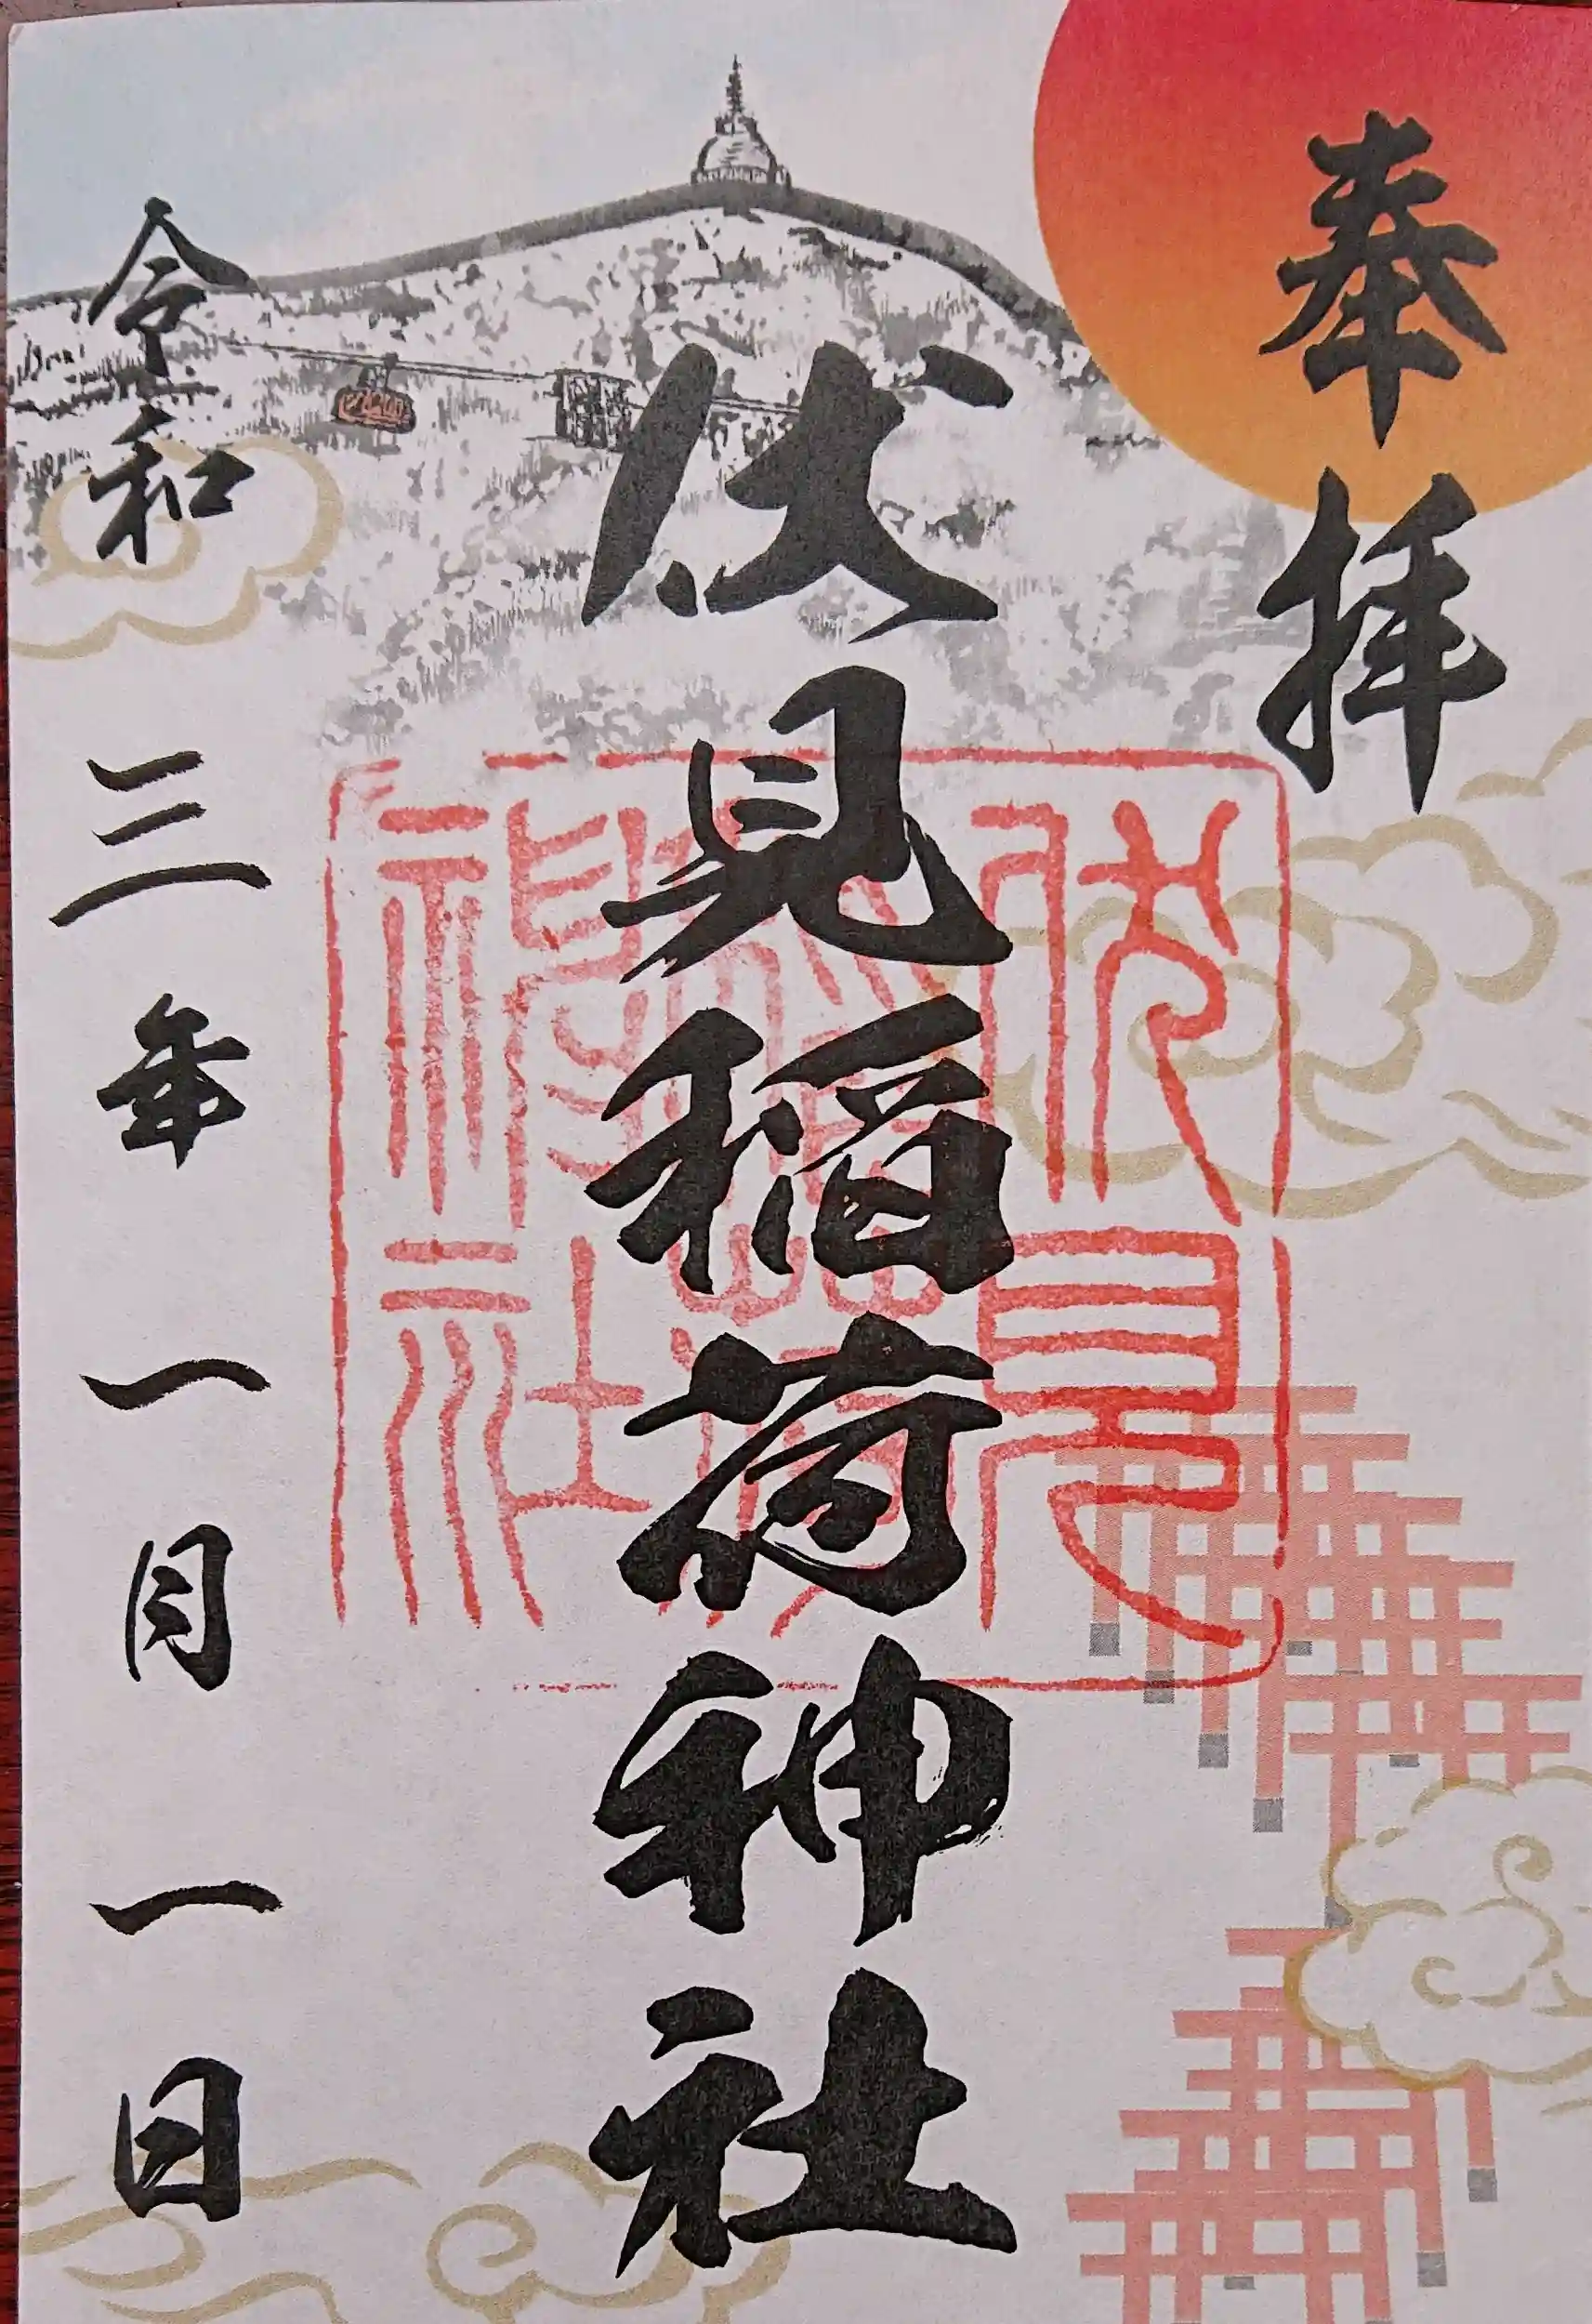 奉拝
伏見稲荷神社
伏見稲荷神社
令和三年一月一日